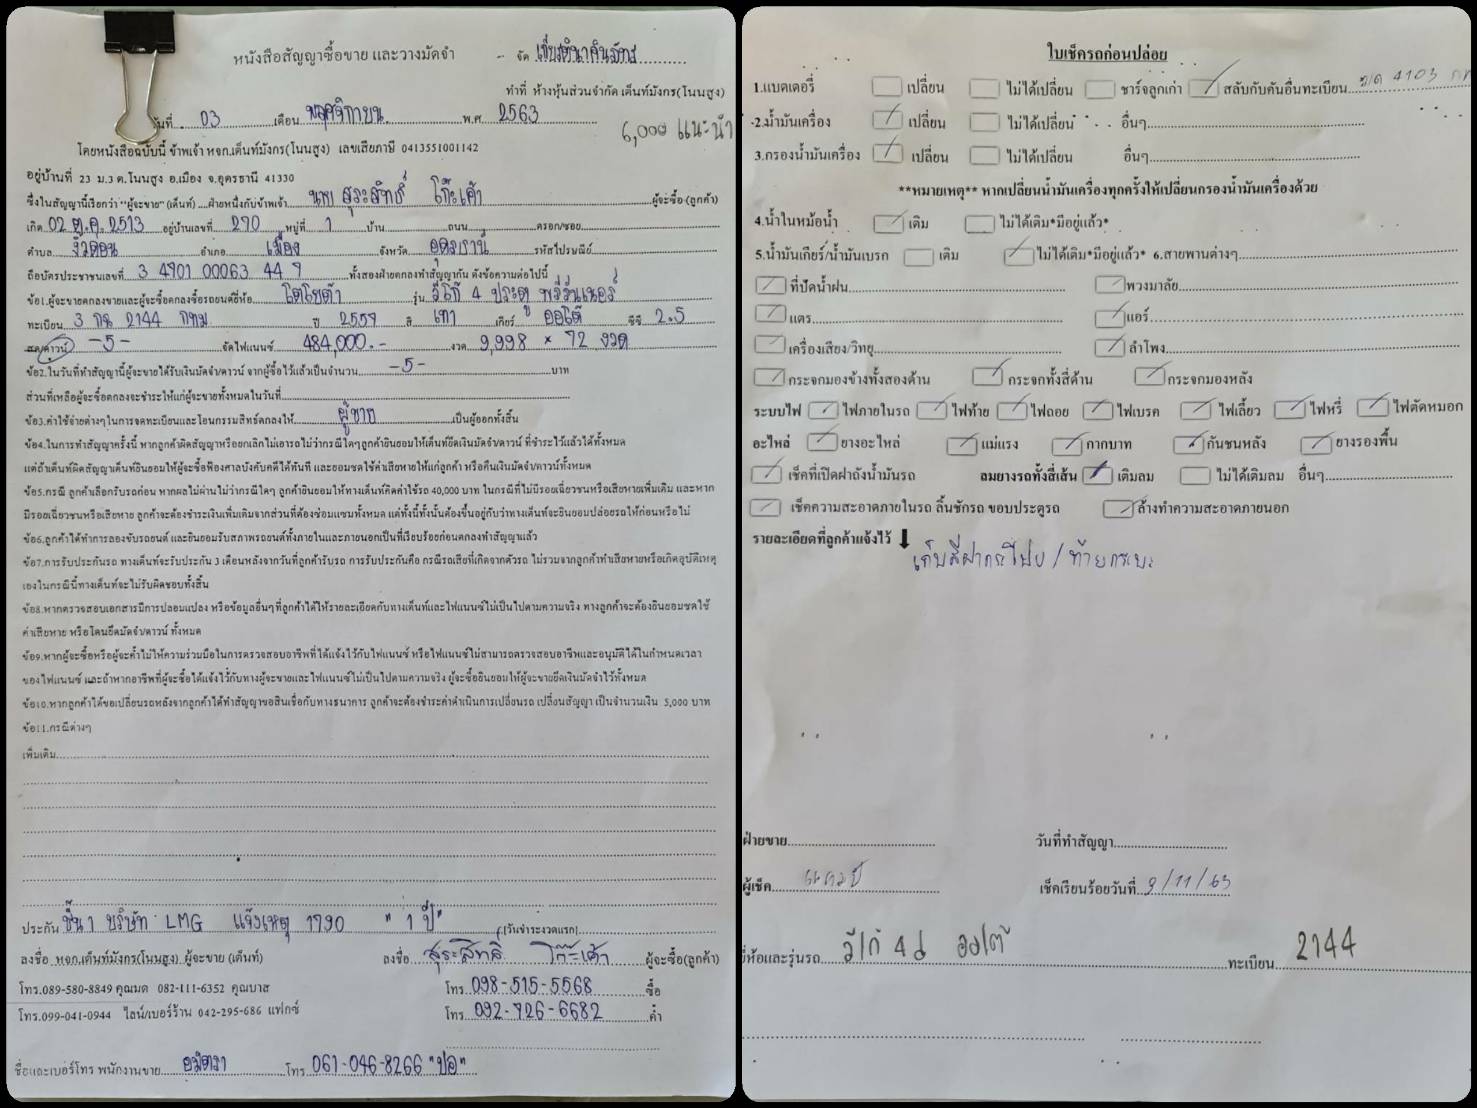 หนังสือสัญญาซื้อขาย และวางมัดจำ - จัด
ทำที่ ห้างหุ้นส่วนจำกัด เต็นท์มังกร(โนนสูง)
วันที่ 03 เดือน พฤศจิกายน พ.ศ. 2563
6,000 แนะนำ
โดยหนังสือฉบับนี้ ข้าพเจ้า หจก.เต็นท์มังกร(โนนสูง) เลขเสียภาษี 0413551001142
อยู่บ้านที่ 23 ม.3 ต.โนนสูง อ.เมือง จ.อุดรธานี 41330
ซึ่งในสัญญานี้เรียกว่า "ผู้จะขาย" (เต็นท์) ....ฝ่ายหนึ่งกับข้าพเจ้า นาย สุระสิทธิ์ โก๊ะเค้า ผู้จะซื้อ (ลูกค้า)
เกิด 02 ต.ค. 2513 อยู่บ้านเลขที่ 270 หมู่ที่ 1 บ้าน ถนน ตรอก/ซอย
ตำบล งิ้วดอน อำเภอ เมือง จังหวัด อุดรธานี รหัสไปรษณีย์
ถือบัตรประชาชนเลขที่ 3 4901 00063 44 9 ทั้งสองฝ่ายตกลงทำสัญญากัน ดังข้อความต่อไปนี้
ข้อ1.ผู้จะขายตกลงขายและผู้จะซื้อตกลงซื้อรถยนต์ยี่ห้อ โตโยต้า รุ่น วีโก้ 4 ประตู พรีรันเนอร์
ทะเบียน 3 กน 2144 กทม ปี 2557 สี เทา เกียร์ ออโต้ ซีซี 2.5
สด/ดาวน์ -5- จัดไฟแนนซ์ 484,000.- งวด 9,998 × 72 งวด
ข้อ2.ในวันที่ทำสัญญานี้ผู้จะขายได้รับเงินมัดจำ/ดาวน์ จากผู้ซื้อไว้แล้วเป็นจำนวน -5- บาท
ส่วนที่เหลือผู้จะซื้อตกลงจะชำระให้แก่ผู้จะขายทั้งหมดในวันที่
ข้อ3.ค่าใช้จ่ายต่างๆในการจดทะเบียนและโอนกรรมสิทธ์ตกลงให้ ผู้ขาย เป็นผู้ออกทั้งสิ้น
ข้อ4.ในการทำสัญญาครั้งนี้ หากลูกค้าผิดสัญญาหรือยกเลิกไม่เอารถไม่ว่ากรณีใดๆลูกค้ายินยอมให้เต็นท์ยึดเงินมัดจำ/ดาวน์ ที่ชำระไว้แล้วได้ทั้งหมด
แต่ถ้าเต็นท์ผิดสัญญาเต็นท์ยินยอมให้ผู้จะซื้อฟ้องศาลบังคับคดีได้ทันที และยอมชดใช้ค่าเสียหายให้แก่ลูกค้า หรือคืนเงินมัดจำ/ดาวน์ทั้งหมด
ข้อ5.กรณี ลูกค้าเลือกรับรถก่อน หากผลไม่ผ่านไม่ว่ากรณีใดๆ ลูกค้ายินยอมให้ทางเต็นท์คิดค่าใช้รถ 40,000 บาท ในกรณีที่ไม่มีรอยเฉี่ยวชนหรือเสียหายเพิ่มเติม และหาก
มีรอยเฉี่ยวชนหรือเสียหาย ลูกค้าจะต้องชำระเงินเพิ่มเติมจากส่วนที่ต้องซ่อมแซมทั้งหมด แต่ทั้งนี้ทั้งนั้นต้องขึ้นอยู่กับว่าทางเต็นท์จะยินยอมปล่อยรถให้ก่อนหรือไม่
ข้อ6.ลูกค้าได้ทำการลองขับรถยนต์ และยินยอมรับสภาพรถยนต์ทั้งภายในและภายนอกเป็นที่เรียบร้อยก่อนตกลงทำสัญญาแล้ว
ข้อ7.การรับประกันรถ ทางเต็นท์จะรับประกัน 3 เดือนหลังจากวันที่ลูกค้ารับรถ การรับประกันคือ กรณีรถเสียที่เกิดจากตัวรถ ไม่รวมจากลูกค้าทำเสียหายหรือเกิดอุบัติเหตุ
เองในกรณีนี้ทางเต็นท์จะไม่รับผิดชอบทั้งสิ้น
ข้อ8.หากตรวจสอบเอกสารมีการปลอมแปลง หรือข้อมูลอื่นๆที่ลูกค้าได้ให้รายละเอียดกับทางเต็นท์และไฟแนนซ์ไม่เป็นไปตามความจริง ทางลูกค้าจะต้องยินยอมชดใช้
ค่าเสียหาย หรือโดนยึดมัดจำ/ดาวน์ ทั้งหมด
ข้อ9.หากผู้จะซื้อหรือผู้จะค้ำไม่ให้ความร่วมมือในการตรวจสอบอาชีพที่ได้แจ้งไว้กับไฟแนนซ์ หรือไฟแนนซ์ไม่สามารถตรวจสอบอาชีพและอนุมัติได้ในกำหนดเวลา
ของไฟแนนซ์ และถ้าหากอาชีพที่ผู้จะซื้อได้แจ้งไว้กับทางผู้จะขายและไฟแนนซ์ไม่เป็นไปตามความจริง ผู้จะซื้อยินยอมให้ผู้จะขายยึดเงินมัดจำไว้ทั้งหมด
ข้อ10.หากลูกค้าได้ขอเปลี่ยนรถหลังจากลูกค้าได้ทำสัญญาขอสินเชื่อกับทางธนาคาร ลูกค้าจะต้องชำระค่าดำเนินการเปลี่ยนรถ เปลี่ยนสัญญา เป็นจำนวนเงิน 5,000 บาท
ข้อ11.กรณีต่างๆ
เพิ่มเติม
ประกัน ชั้น 1 บริษัท LMG แจ้งเหตุ 1790 " 1 ปี" (วันชำระงวดแรก)
ลงชื่อ หจก.เต็นท์มังกร(โนนสูง) ผู้จะขาย (เต็นท์) ลงชื่อ สุระสิทธิ์ โก๊ะเค้า ผู้จะซื้อ(ลูกค้า)
โทร.089-580-8849 คุณมด 082-111-6352 คุณบาส โทร. 098-515-5568 ซื้อ
โทร.099-041-0944 ไลน์/เบอร์ร้าน 042-295-686 แฟกซ์ โทร. 092-726-6682 ค้ำ
ชื่อและเบอร์โทร พนักงานขาย โทร. 061-046-8266 "ปอ"
ใบเช็ครถก่อนปล่อย
1.แบตเตอรี่ เปลี่ยน ไม่ได้เปลี่ยน ชาร์จลูกเก่า สลับกับคันอื่นทะเบียน 4103
2.น้ำมันเครื่อง เปลี่ยน ไม่ได้เปลี่ยน อื่นๆ
3.กรองน้ำมันเครื่อง เปลี่ยน ไม่ได้เปลี่ยน อื่นๆ
**หมายเหตุ** หากเปลี่ยนน้ำมันเครื่องทุกครั้งให้เปลี่ยนกรองน้ำมันเครื่องด้วย
4.น้ำในหม้อน้ำ เดิม ไม่ได้เติม*มีอยู่แล้ว*
5.น้ำมันเกียร์/น้ำมันเบรก เติม ไม่ได้เติม*มีอยู่แล้ว* 6.สายพานต่างๆ
ที่ปัดน้ำฝน พวงมาลัย
แตร แอร์
เครื่องเสียง/วิทยุ ลำโพง
กระจกมองข้างทั้งสองด้าน กระจกทั้งสี่ด้าน กระจกมองหลัง
ระบบไฟ ไฟภายในรถ ไฟท้าย ไฟถอย ไฟเบรค ไฟเลี้ยว ไฟหรี่ ไฟตัดหมอก
อะไหล่ ยางอะไหล่ แม่แรง กากบาท กันชนหลัง ยางรองพื้น
เช็คที่เปิดฝาถังน้ำมันรถ ลมยางรถทั้งสี่เส้น เติมลม ไม่ได้เติมลม อื่นๆ
เช็คความสะอาดภายในรถ ลิ้นชักรถ ขอบประตูรถ ล้างทำความสะอาดภายนอก
รายละเอียดที่ลูกค้าแจ้งไว้ ↓
เก็บสีฝากระโปรง / ท้ายกระบะ
ฝ่ายขาย วันที่ทำสัญญา
ผู้เช็ค เช็คเรียบร้อยวันที่ 9/11/63
ยี่ห้อและรุ่นรถ วีโก้ 4ป ออโต้ ทะเบียน 2144